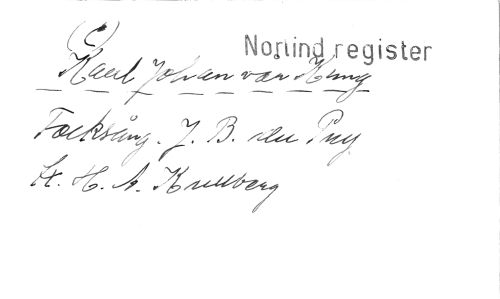 (C)
Norlind register
Karl Johan vår Kung
Folksång. J. B. du Puy
H. A. Kullberg